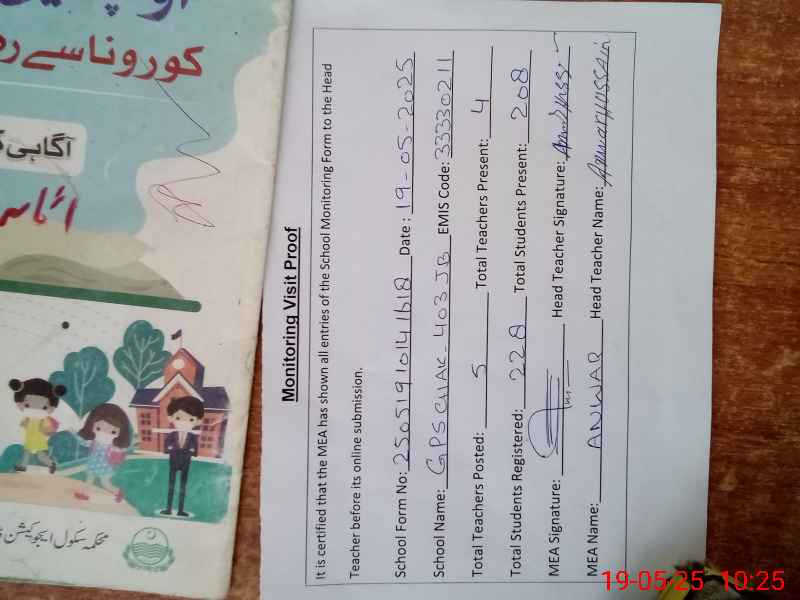 کورونا سے
آگاہی
محکمہ سکول ایجوکیشن
Monitoring Visit Proof
It is certified that the MEA has shown all entries of the School Monitoring Form to the Head
Teacher before its online submission.
School Form No: 25051910141618 Date : 19-05-2025
School Name: GPS CHAK-403 JB EMIS Code: 33330211
Total Teachers Posted: 5 Total Teachers Present: 4
Total Students Registered: 228 Total Students Present: 208
MEA Signature: Head Teacher Signature:
MEA Name: ANWAR Head Teacher Name: Anwar HUSSAIN
19-05-25 10:25